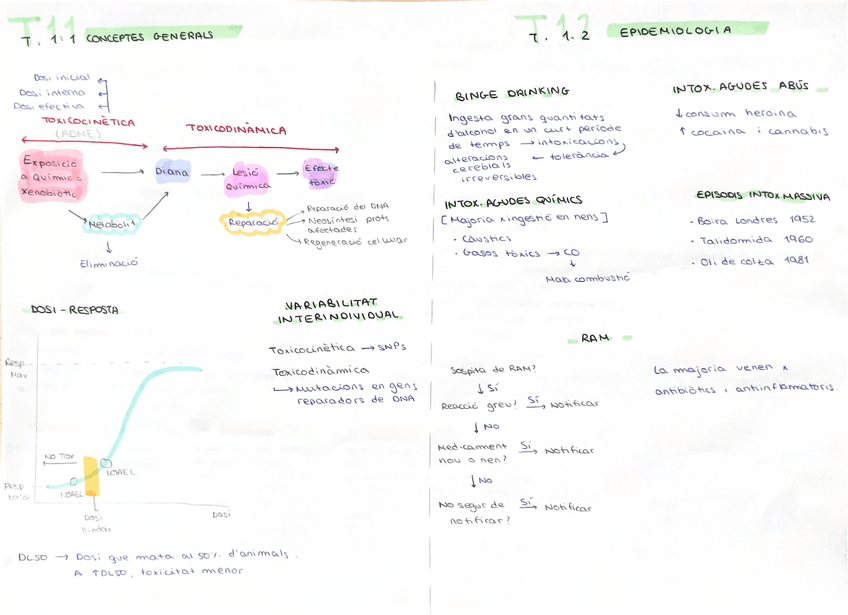 T.1.1
T. 1.1 CONCEPTES GENERALS
Dosi inicial
Dosi interna
Dosi efectiva
TOXICOCINÈTICA
(ADME)
TOXICODINÀMICA
Exposició
a Químic
xenobiòtic
Diana
Lesió
Química
Efecte
tòxic
Metabolit
Reparació
Reparació del DNA
Neosíntesi prots
afectades
Regeneració cel·lular
Eliminació
DOSI - RESPOSTA
Resp
Max
NO TOX
LOAEL
NOAEL
Resp
Dosi
llindar
Dosi
VARIABILITAT
INTERINDIVIDUAL
Toxicocinètica → SNPs
Toxicodinàmica
↳ Mutacions en gens
reparadors de DNA
DL50 → Dosi que mata al 50% d'animals.
A ↑DL50, toxicitat menor
T. 1.2
T. 1.2 EPIDEMIOLOGIA
BINGE DRINKING
Ingesta grans quantitats
d'alcohol en un curt període
de temps → intoxicacions
alteracions ← tolerància
cerebrals
irreversibles
INTOX. AGUDES ABÚS
↓ consum heroïna
↑ cocaïna i cannabis
INTOX. AGUDES QUÍMICS
[Majoria x ingestió en nens]
· Càustics
· Gasos tòxics → CO
↓
Mala combustió
EPISODIS INTOX MASSIVA
· Boira Londres 1952
· Talidomida 1960
· Oli de colza 1981
RAM
Sospita de RAM?
↓ Sí
Reacció greu? Sí → Notificar
↓ NO
Medicament Sí → Notificar
nou o nen?
↓ NO
No segur de Sí → Notificar
notificar?
La majoria venen x
antibiòtics i antiinflamatoris